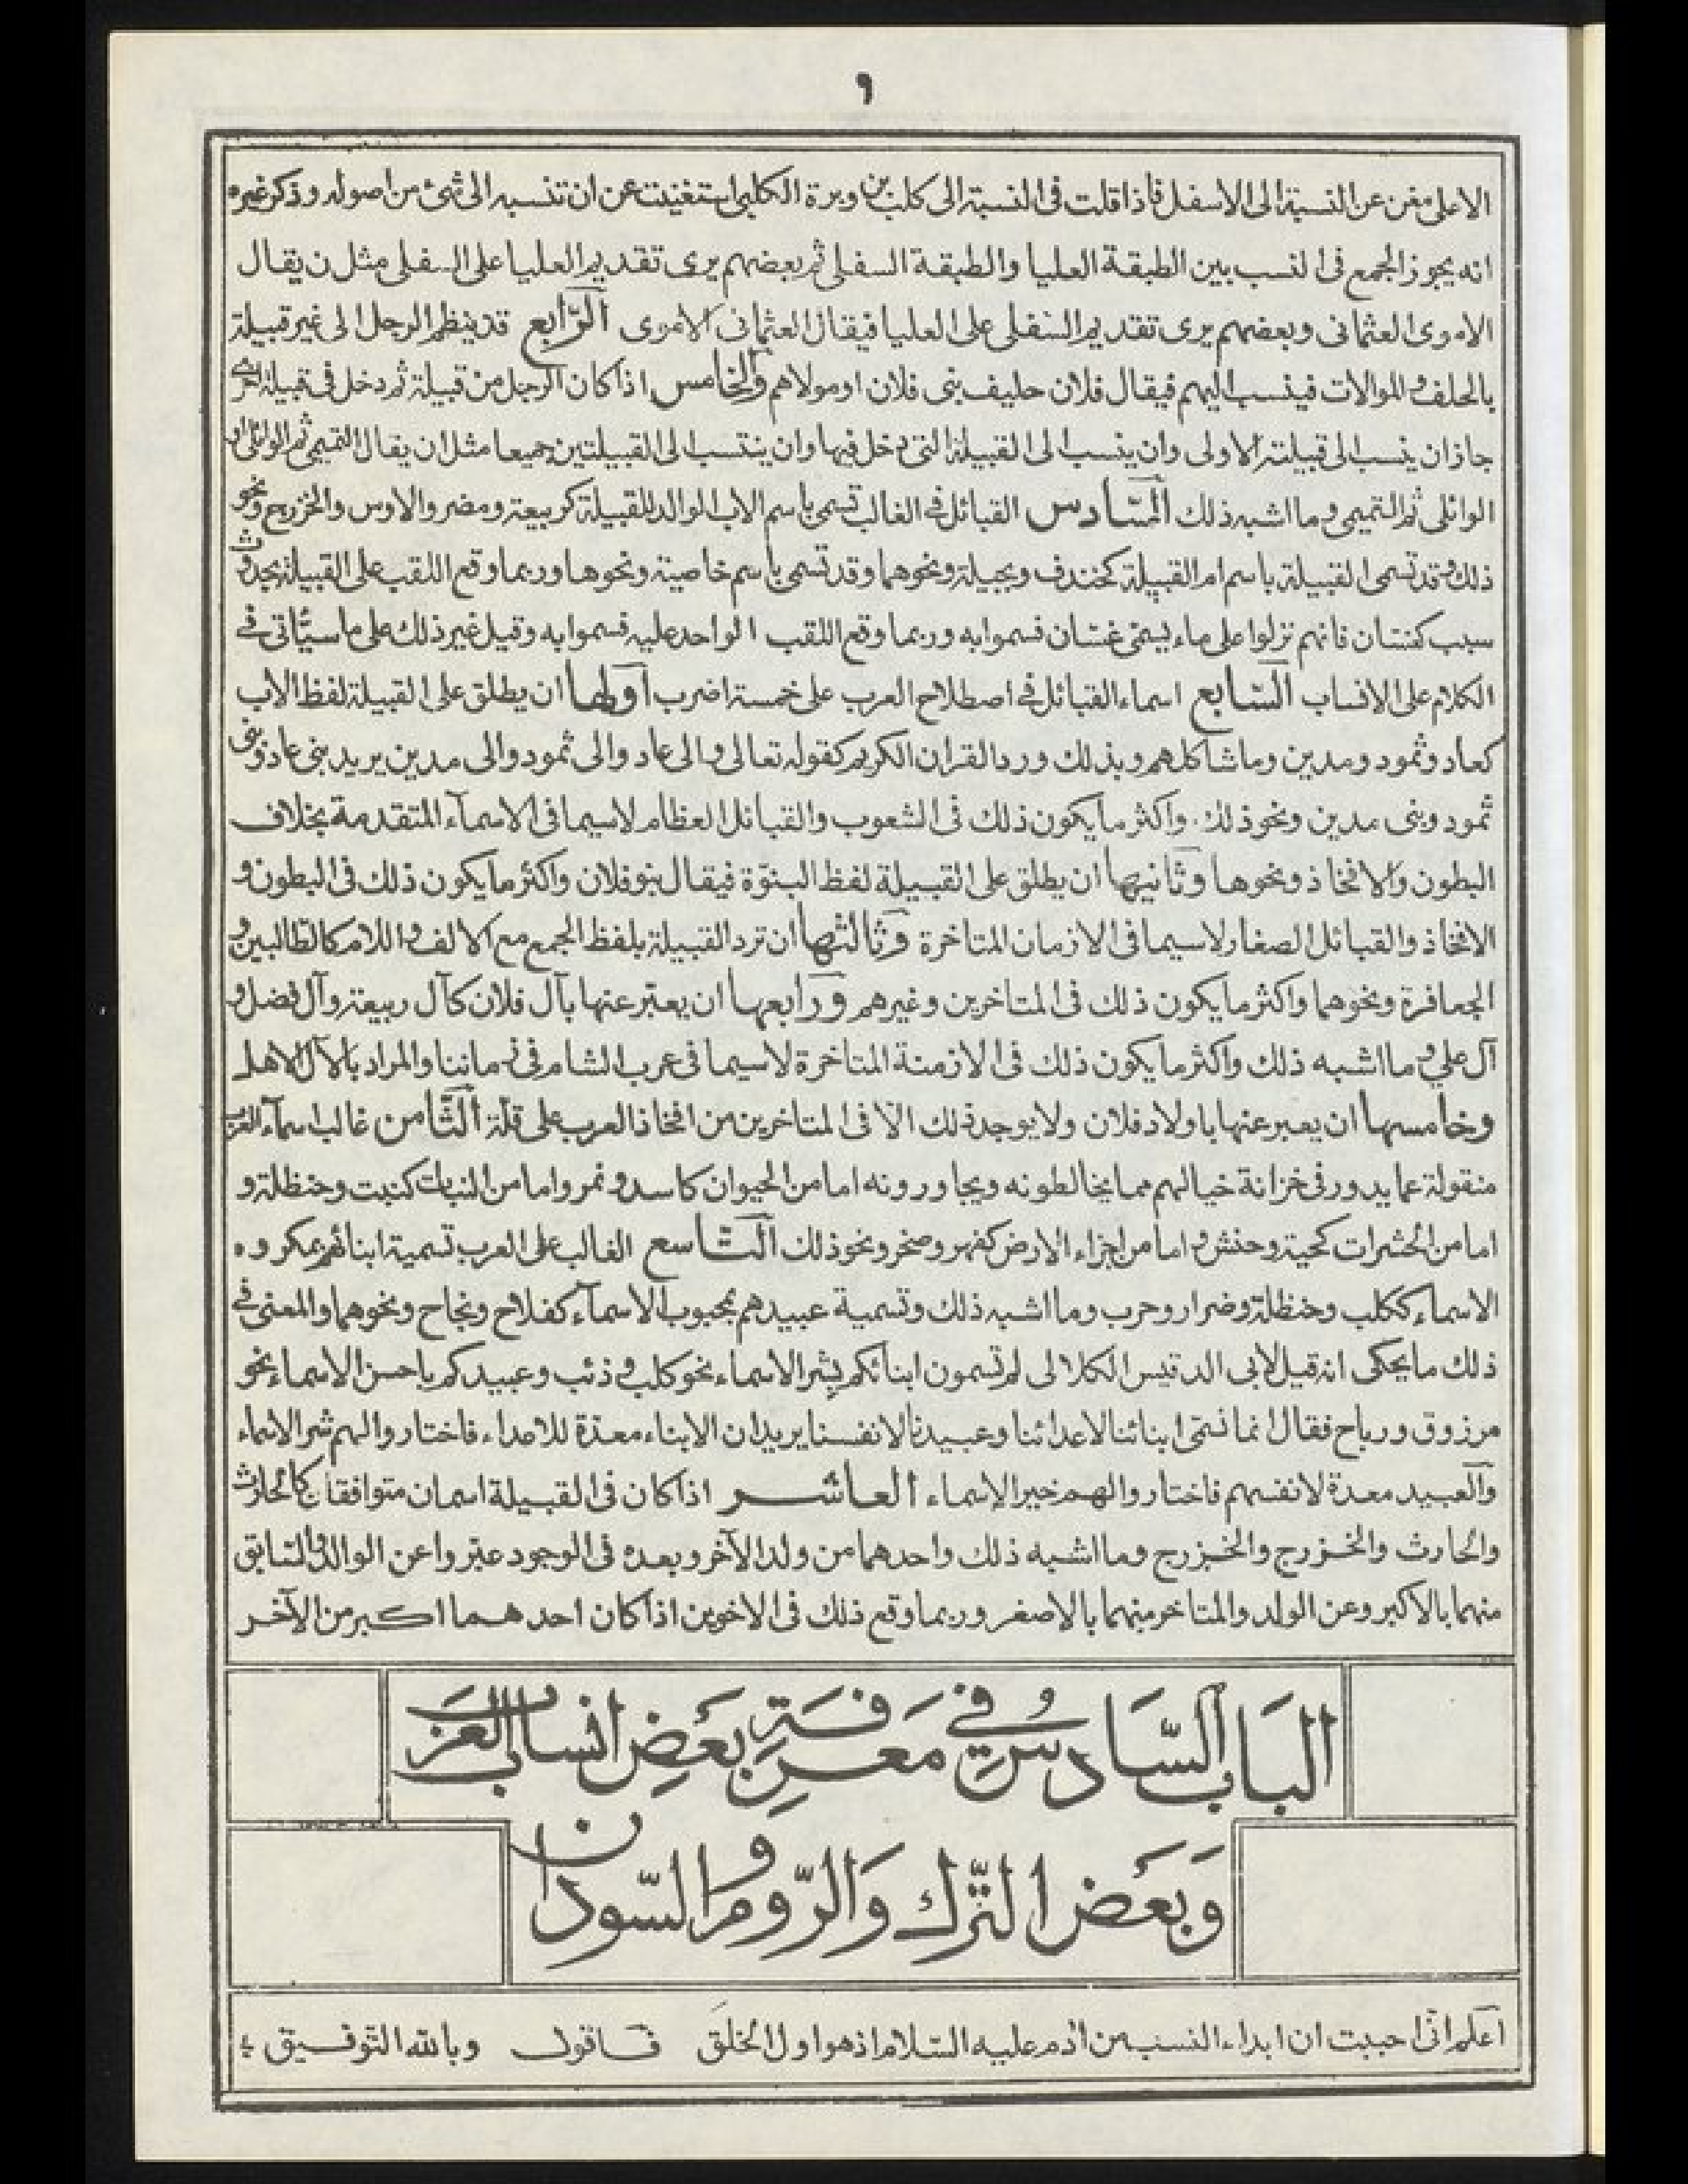 ٩
الاعلى مغن عن النسبة الى الاسفل فاذا قلت فى النسبة الى كلب بن وبرة الكلبى استغنيت عن ان تنسبه الى شئ من اصوله وذكر غيره
انه يجوز الجمع فى النسب بين الطبقة العليا والطبقة السفلى ثم بعضهم يرى تقديم العليا على السفلى مثل ن يقال
الاموى العثمانى وبعضهم يرى تقديم السفلى على العليا فيقال العثمانى الاموى الرابع قد ينظم الرجل الى غير قبيلة
بالحلف والموالات فينسب اليهم فيقال فلان حليف بنى فلان او مولاهم والخامس اذا كان الرجل من قبيلة ثم دخل فى قبيلة اخرى
جاز ان ينسب الى قبيلته الاولى وان ينسب الى القبيلة التى دخل فيها وان ينتسب الى القبيلتين جميعا مثل ان يقال التميمى ثم الوائلى او
الوائلى ثم التميمى وما اشبه ذلك السّادس القبائل فى الغالب تسمى باسم الاب الوالد للقبيلة كربيعة ومضر والاوس والخزرج ونحو
ذلك وقد تسمى القبيلة باسم ام القبيلة كخندف وبجيلة ونحوهما وقد تسمى باسم خاصية ونحوها وربما وقع اللقب على القبيلة بحدوث
سبب كغسان فانهم نزلوا على ماء يسمى غسّان فسموا به وربما وقع اللقب الواحد عليه فسموا به وقيل غير ذلك على ما سيأتى فى
الكلام على الانساب السّابع اسماء القبائل فى اصطلاح العرب على خمسة اضرب اولها ان يطلق على القبيلة لفظ الاب
كعاد وثمود ومدين وما شاكلهم وبذلك ورد القران الكريم كقوله تعالى والى عاد والى ثمود والى مدين يريد بنى عاد وبنى
ثمود وبنى مدين ونحو ذلك. واكثر ما يكون ذلك فى الشعوب والقبائل العظام لاسيما فى الاسمآء المتقدمة بخلاف
البطون والافخاذ ونحوها وثانيها ان يطلق على القبيلة لفظ البنوّة فيقال بنو فلان واكثر ما يكون ذلك فى البطون و
الافخاذ والقبائل الصغار لاسيما فى الازمان المتاخرة وثالثها ان ترد القبيلة بلفظ الجمع مع الالف واللام كالطالبين و
الجعافرة ونحوهما واكثر ما يكون ذلك فى المتاخرين وغيرهم ورابعها ان يعبّر عنها بآل فلان كآل ربيعة وآل فضل و
آل علي وما اشبه ذلك واكثر ما يكون ذلك فى الازمنة المتاخرة لاسيما فى عرب الشام فى زماننا والمراد بالآل الاهل
وخامسها ان يعبر عنها باولاد فلان ولا يوجد ذلك الّا فى المتاخرين من افخاذ العرب على قلّة الثّامن غالب اسمآء العرب
منقولة عما يدور فى خزانة خيالهم مما يخالطونه ويجاورونه اما من الحيوان كاسد ونمر واما من النبات كنبت وحنظلة و
اما من الحشرات كحية وحنش واما من اجزاء الارض كفهر وصخر ونحو ذلك التّاسع الغالب على العرب تسمية ابنائهم بمكروه
الاسماء ككلب وحنظلة وضرار وحرب وما اشبه ذلك وتسمية عبيدهم بمحبوب الاسمآء كفلاح ونجاح ونحوهما والمعنى فى
ذلك ما يحكى انه قيل لابى الدقيس الكلالى لم تسمون ابنائكم بشر الاسماء نحو كلب وذئب وعبيدكم باحسن الاسماء نحو
مرزوق ورباح فقال انما نسمّى ابنائنا لاعدائنا وعبيدنا لانفسنا يريد ان الابناء معدّة للاعداء فاختاروا لهم شر الاسماء
والعبيد معدة لانفسهم فاختاروا لهم خير الاسماء العاشر اذا كان فى القبيلة اسمان متوافقان كالحارث
والحارث والخزرج والخزرج وما اشبه ذلك واحدهما من ولد الآخر وبعده فى الوجود عبّروا عن الوالد والسّابق
منهما بالاكبر وعن الولد والمتاخر منهما بالاصغر وربما وقع ذلك فى الاخوين اذا كان احدهما اكبر من الآخر
البَاب السّادسُ في مَعرفةِ بعَضِ انسابِ العَرَب
وَبعَض التّرك وَالرّوم والسّودان
اعلم انّى احببت ان ابداء النسب من آدم عليه السّلام اذ هو اول الخلق فاقول وبالله التوفيق